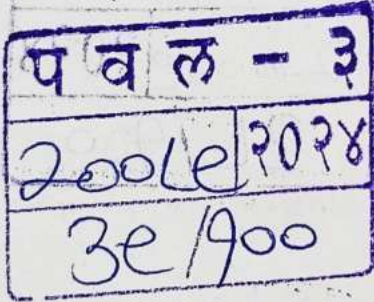 प व ल - ३
२००८९ २०२४
३९/१००